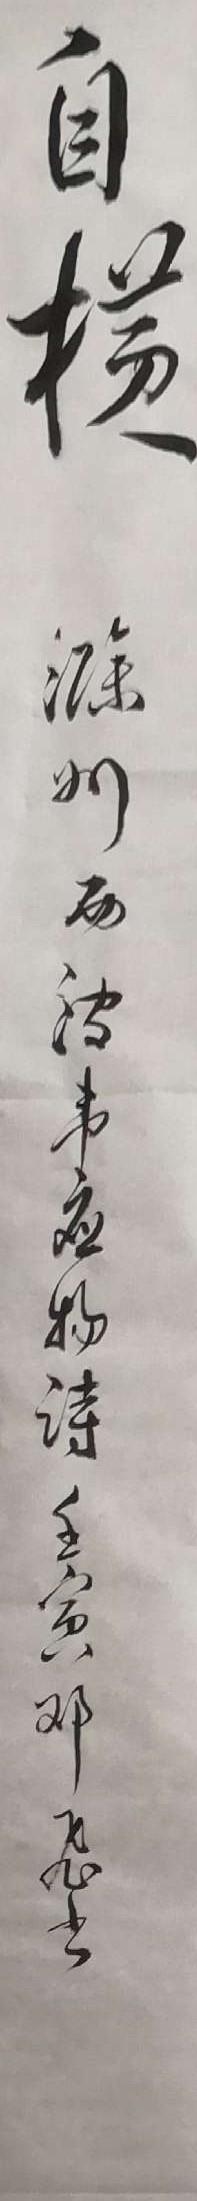 自横 滁州西涧韦应物诗壬寅邓书